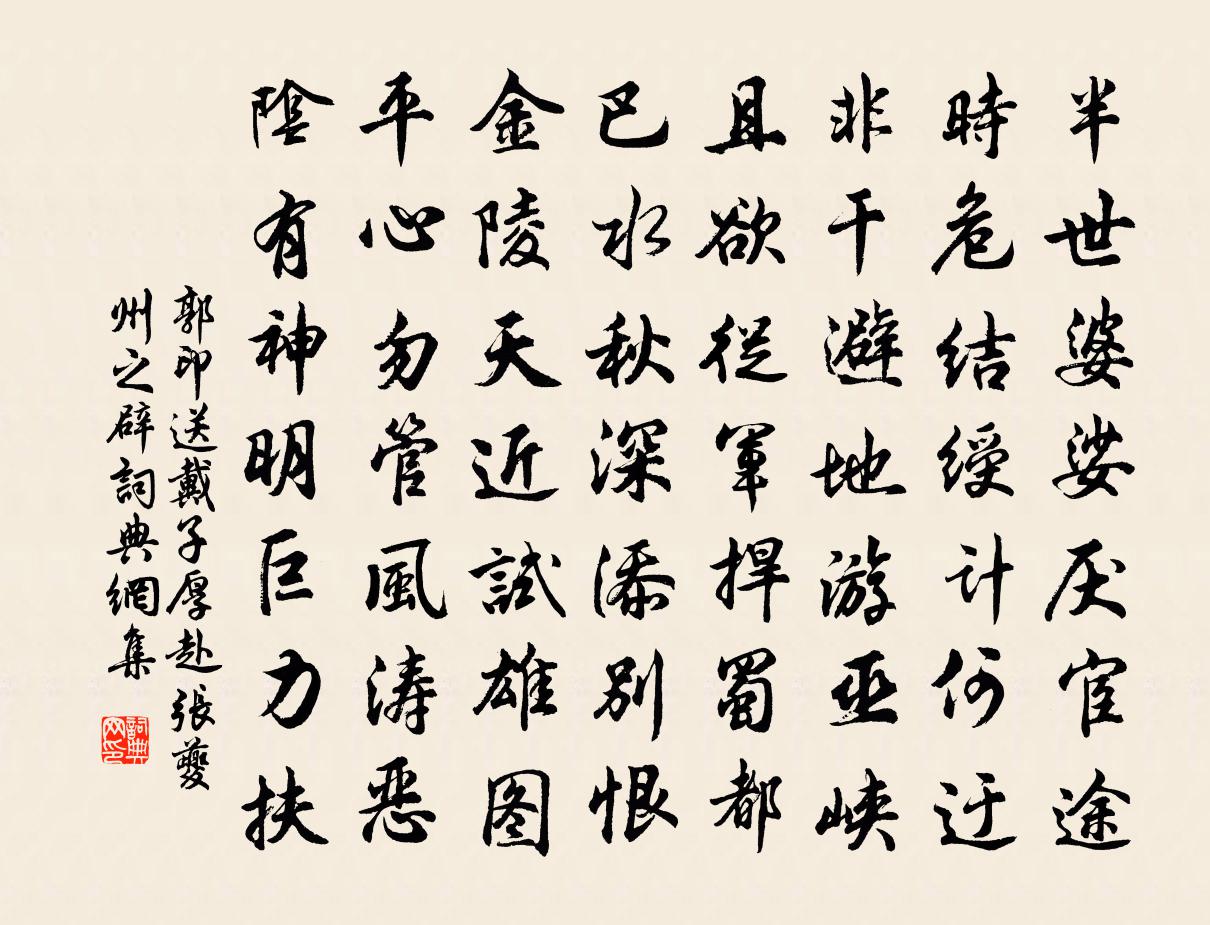 半世婆娑厌宦途
時危结綬计何迂
非干避地游巫峡
且欲從軍捍蜀都
巴水秋深添別恨
金陵天近試雄图
平心勿管風涛恶
陰有神明巨力扶
郭印送戴子厚赴張夔
州之辟詞典網集
詞典
网印